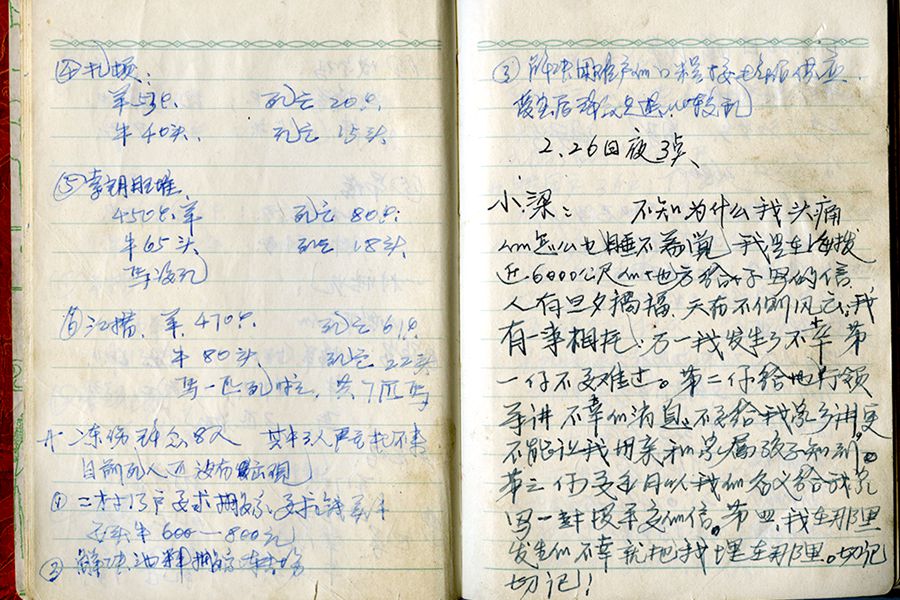 ④扎娘:
羊53只. 死亡20只.
牛40头. 死亡15头
⑤
450只羊 死亡80只.
牛65头 死亡18头.
马没死
⑥江措. 羊.470只. 死亡61只.
牛80头. 死亡22头
马一匹死亡, 共7匹马
冻伤群众8人 其中3人严重
目前死人还没有出现
①二村13户要求搬家,
牛600—800元
②解决
③解决困难户的口粮
2.26日夜3点、
小梁: 不知为什么我头痛
的怎么也睡不着觉 我是在海拔
近6000公尺的地方给你写的信
人有旦夕祸福、天有不侧风云,我
有一事相托: 万一我发生了不幸 第
一你不要难过。第二你给地行领
导讲 不幸的消息. 不要给我家乡讲更
不能让我母亲和家属孩子知到。
第三、你要每月以我的名义给我家
写一封报平安的信。第四、我在那里
发生的不幸就把我埋在那里。切记
切记!